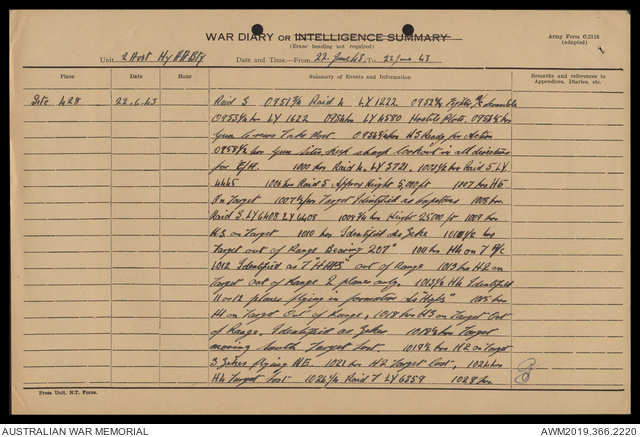 WAR DIARY OR INTELLIGENCE SUMMARY
(Erase heading not required)
Army Form C.2118
(adapted)
Unit 2 Aust Hy AA Bty Date and Time.—From 22 June 43 To 22 June 43
Place Date Summary of Events and Information Remarks and references to Appendices, Diaries, etc.
Site 428 22.6.43 Raid 3 0951 3/4 Raid 4 LY 1222 0952 1/4 a/c scramble
0953 1/4 hrs LY 1622 0954 hrs LY 4580 Hostile Plots.
Gun Crews Take Post. hrs H3 Ready for Action
0958 1/2 hrs Gun Sites keep sharp lookout in all directions
for 1000 hrs Raid 4 LY 3721, Raid 5 LY
4445 1004 hrs Raid 5 Approx Height 5,000 ft 1007 hrs H5
On Target hrs Target Identified as 1008 hrs
Raid 5 LY 6408 LY 6408 hrs Height 25000 ft 1009 hrs
H3 on Target 1010 hrs Identified as Zeke hrs
Target out of Range Bearing 207° 1011 hrs H4 on 7 P/c
1012 Identified as 7 out of Range 1013 hrs H2 on
Target out of Range 2 planes only. 1013 1/2 H4 Identified
11 or 12 planes flying in formation as 1015 hrs
H1 on Target Out of Range, 1018 hrs H3 on Target Out
of Range, Identified as Zekes 1018 1/2 hrs Target
moving South Target Lost. 1019 1/2 hrs H2 on Target
3 Zekes flying NE. 1021 hrs H2 Target Lost, 1024 hrs
H4 Target Lost 1026 1/4 Raid 7 LY 6359 1028 hrs
Press Unit, N.T. Force.
AUSTRALIAN WAR MEMORIAL
AWM2019.366.2220